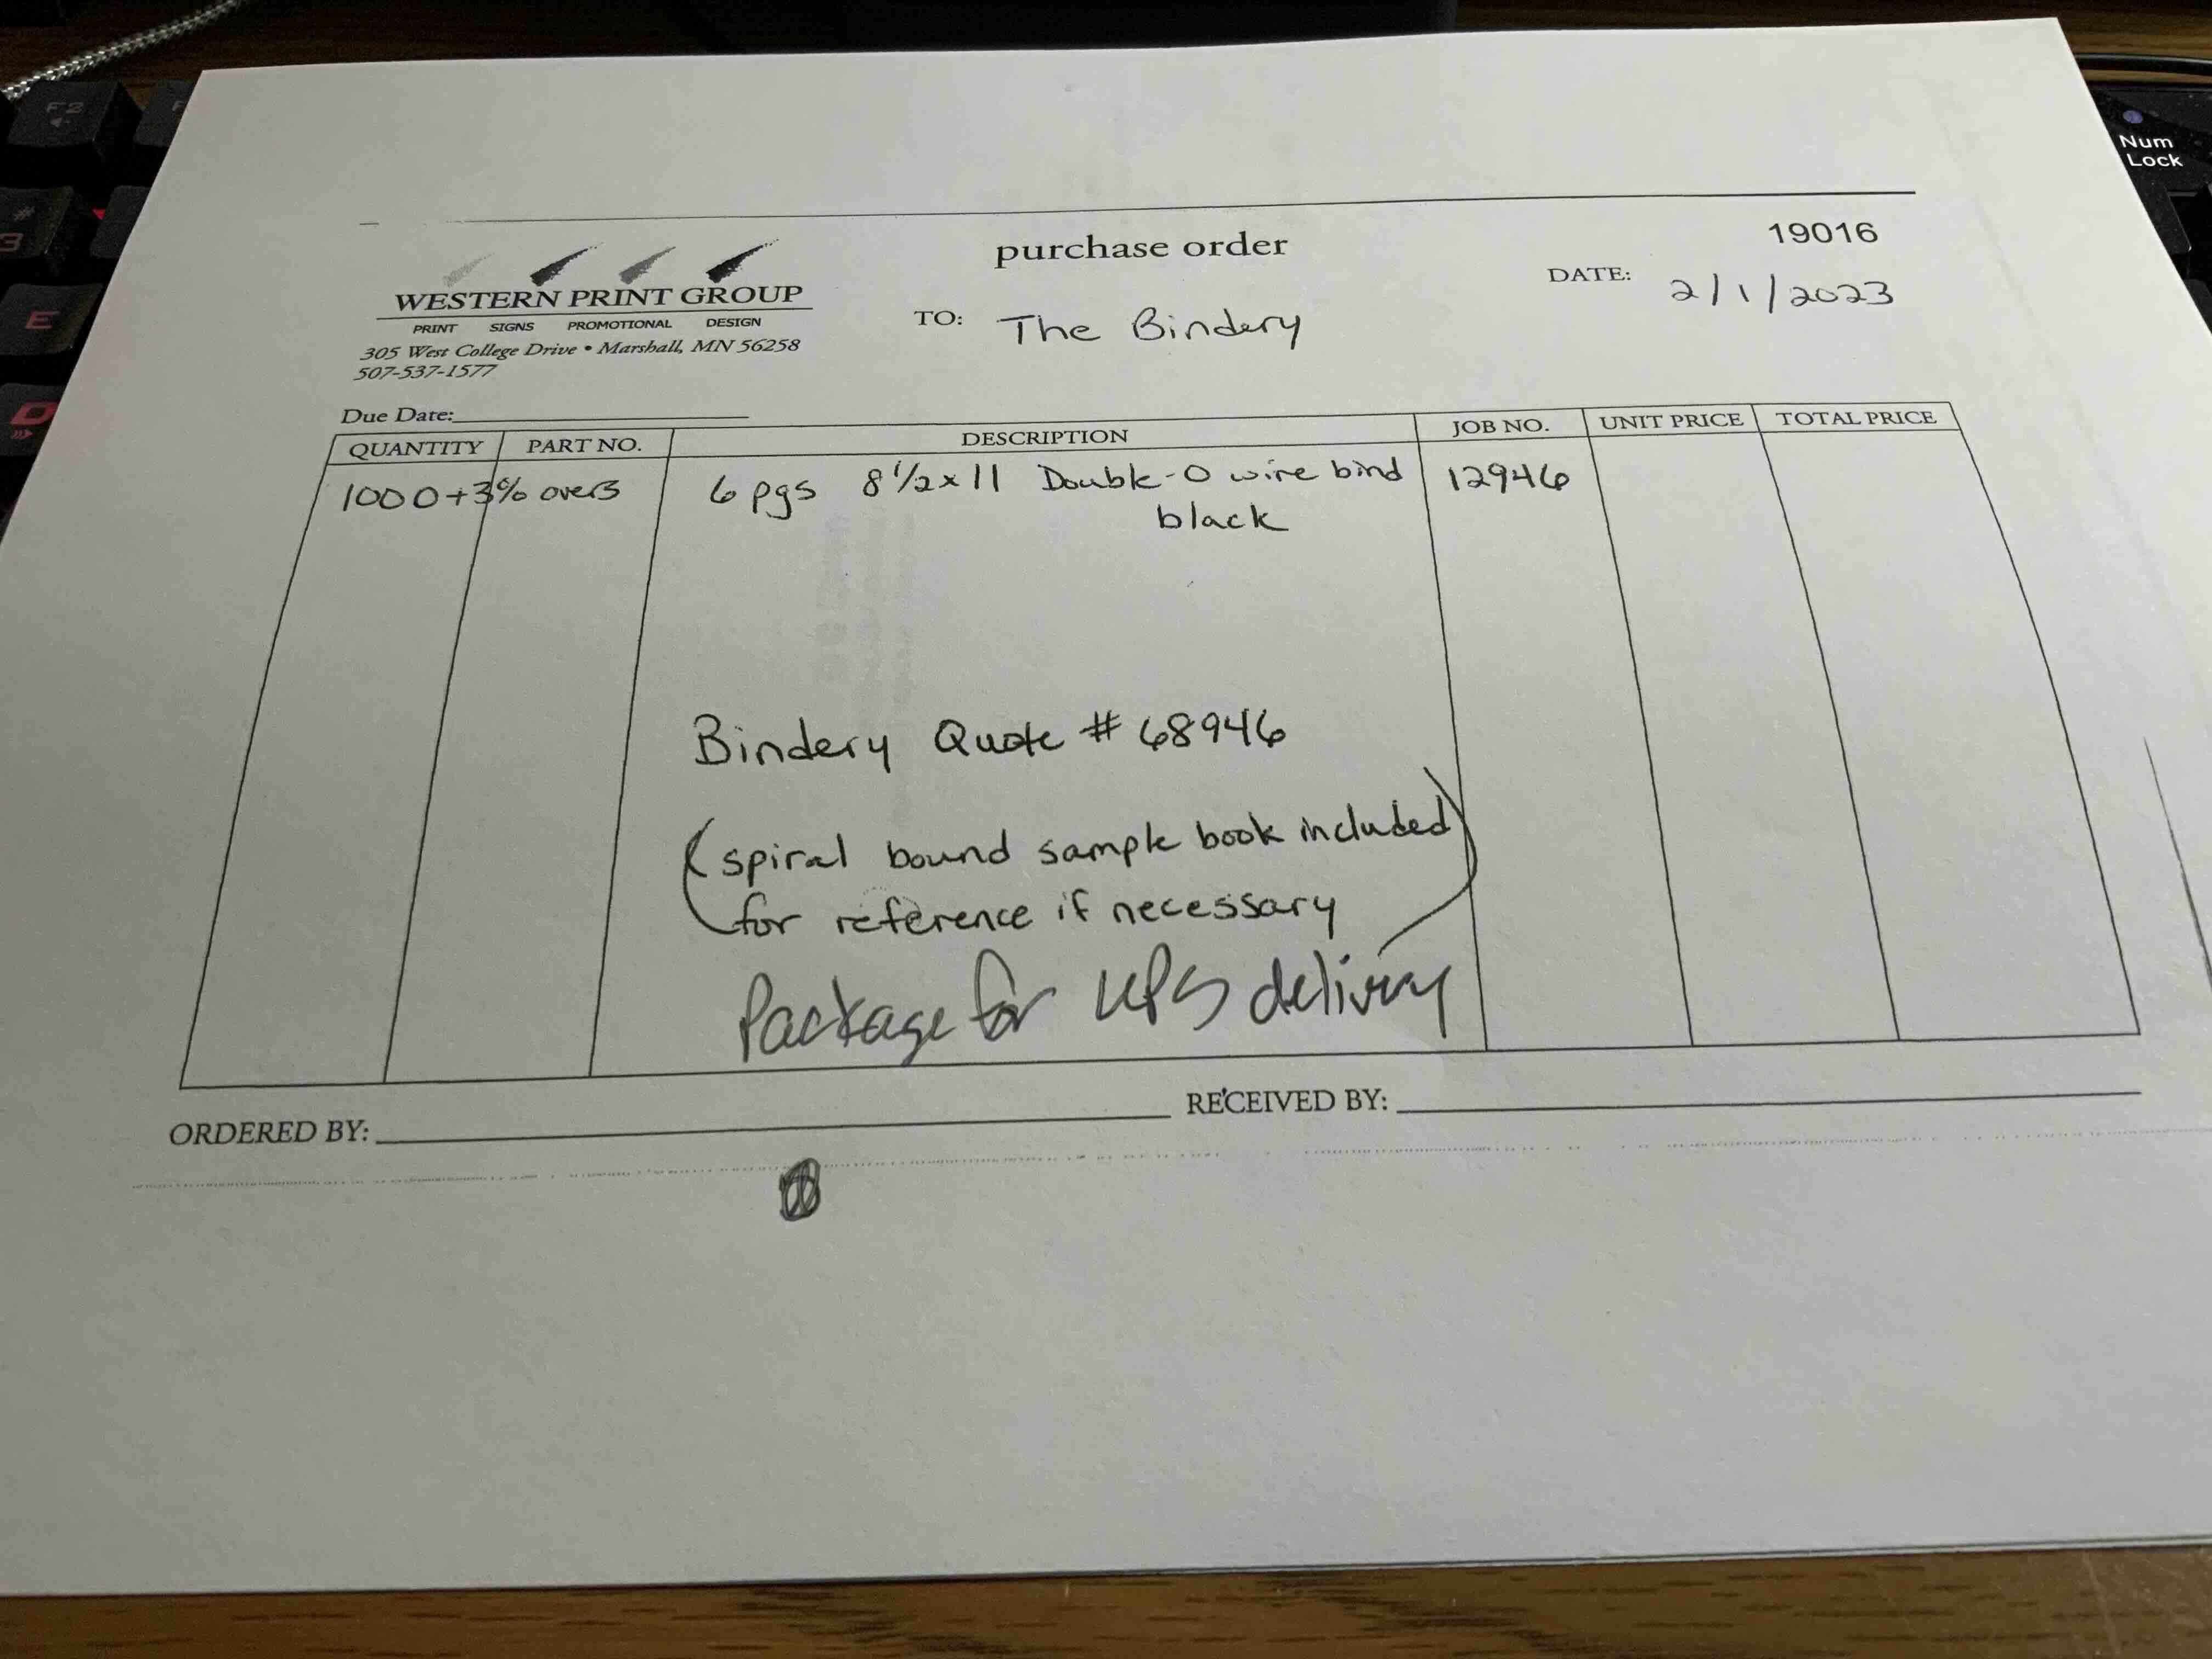 purchase order
19016
WESTERN PRINT GROUP
PRINT SIGNS PROMOTIONAL DESIGN
305 West College Drive • Marshall, MN 56258
507-537-1577
TO: The Bindery
DATE: 2/1/2023
Due Date:
QUANTITY PART NO. DESCRIPTION JOB NO. UNIT PRICE TOTAL PRICE
1000+3% overs 6 pgs 8 1/2 x 11 Double-O wire bind 12946
black
Bindery Quote # 68946
(spiral bound sample book included
for reference if necessary)
Package for UPS delivery
ORDERED BY: RECEIVED BY:
F2
Num
Lock
#
3
E
D